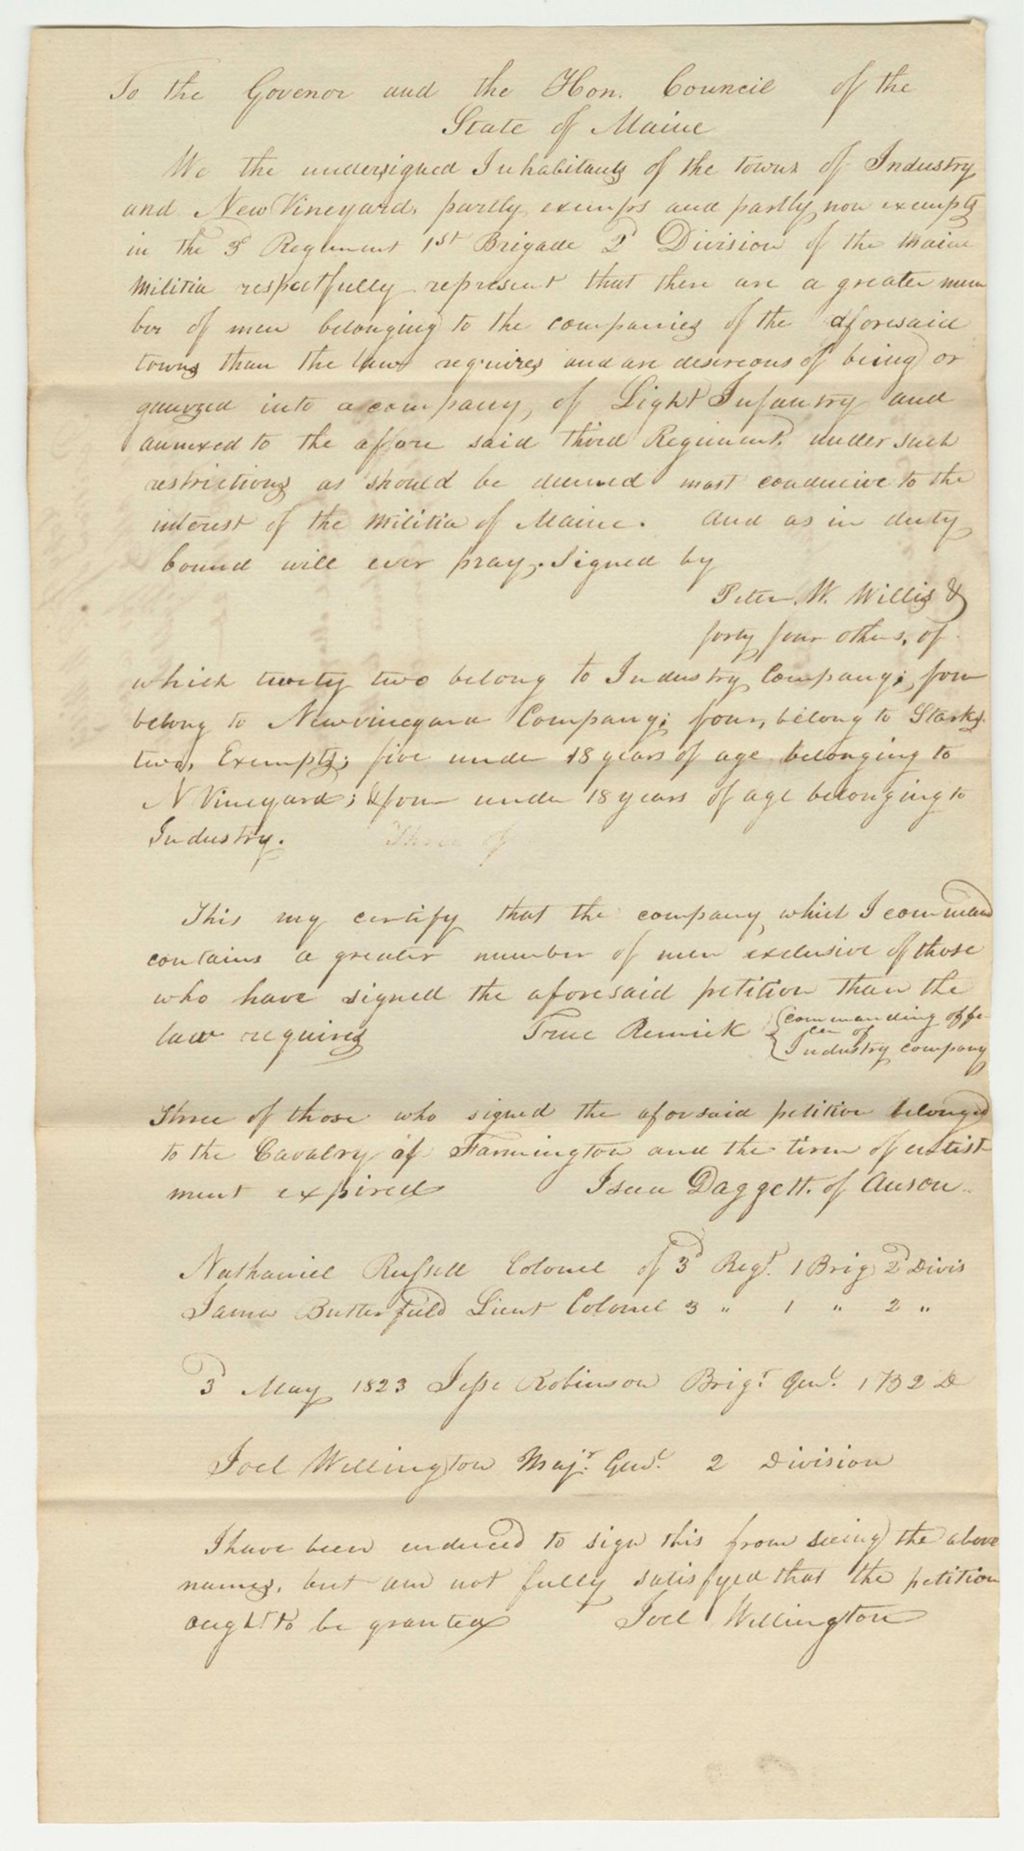 To the Govenor and the Hon. Council of the
State of Maine
We the undersigned Inhabitants of the towns of Industry
and New Vineyard, partly exemps and partly non exempts
in the 3d Regiment 1st Brigade 2d Division of the Maine
Militia respectfully represent that there are a greater num
ber of men belonging to the companies of the aforesaid
towns than the law requires and are desireous of being or
ganized into a company, of Light Infantry and
annexed to the affore said third Regiment, under such
restrictions as should be deemed most conducive to the
interest of the Militia of Maine. And as in duty
bound will ever pray. Signed by
Peter. W. Willis &
forty four others, of
which twenty two belong to Industry Company; four
belong to Newvineyard Company; four, belong to Starks.
two, Exempts; five under 18 years of age belonging to
N Vineyard; & four under 18 years of age belonging to
Industry. Three of
This my certify that the company, which I command
contains a greater number of men exclusive of those
who have signed the aforesaid petition than the
law requires True Remick
commanding offi
cer of
Industry company
Three of those who signed the aforsaid petition belonged
to the Cavalry of Farmington and the time of
ment expired Isaac Daggett. of Anson
Nathaniel Russell Colonel of 3d Regt. 1 Brig 2d Divis
James Butterfield Lieut Colonel 3 " 1 " 2 "
3d May 1823 Jesse Robinson Brigr. Genl. 1 B 2 D
Joel Wellington Majr. Genl. 2 Division
I have been enduced to sign this from seeing the above
names, but am not fully satisfyed that the petition
ought to be granted Joel Wellington